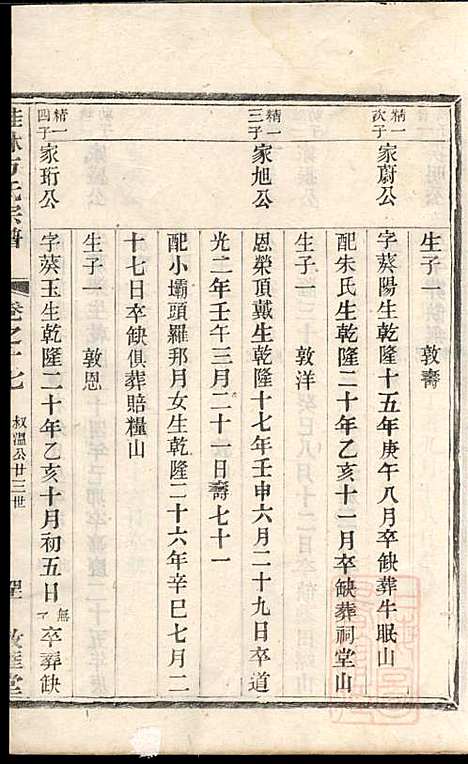 精一
次子
家蔚公
生子一 敦壽
字葵陽生乾隆十五年庚午八月卒缺葬牛眠山
配朱氏生乾隆二十年乙亥十一月卒缺葬祠堂山
生子一 敦洋
精一
三子
家旭公
恩榮頂戴生乾隆十七年壬申六月二十九日卒道
光二年壬午三月二十一日壽七十一
配小壩頭羅那月女生乾隆二十六年辛巳七月二
十七日卒缺俱葬賠糧山
生子一 敦恩
精一
四子
家珩公
字葵玉生乾隆二十年乙亥十月初五日無卒葬缺
桂林方氏宗譜 卷之十七 叔溫公廿三世